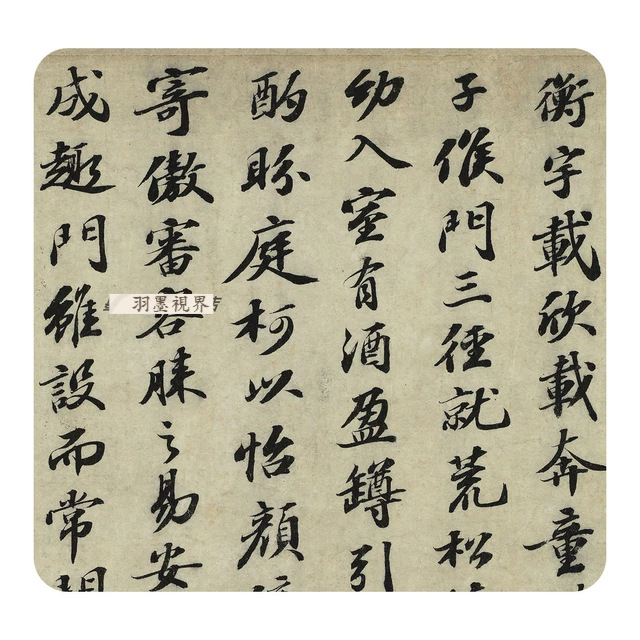 衡宇載欣載奔童
子候門三徑就荒松
幼入室有酒盈罇引
酌眄庭柯以怡顏
寄傲審容膝之易安
成趣門雖設而常
羽墨視界